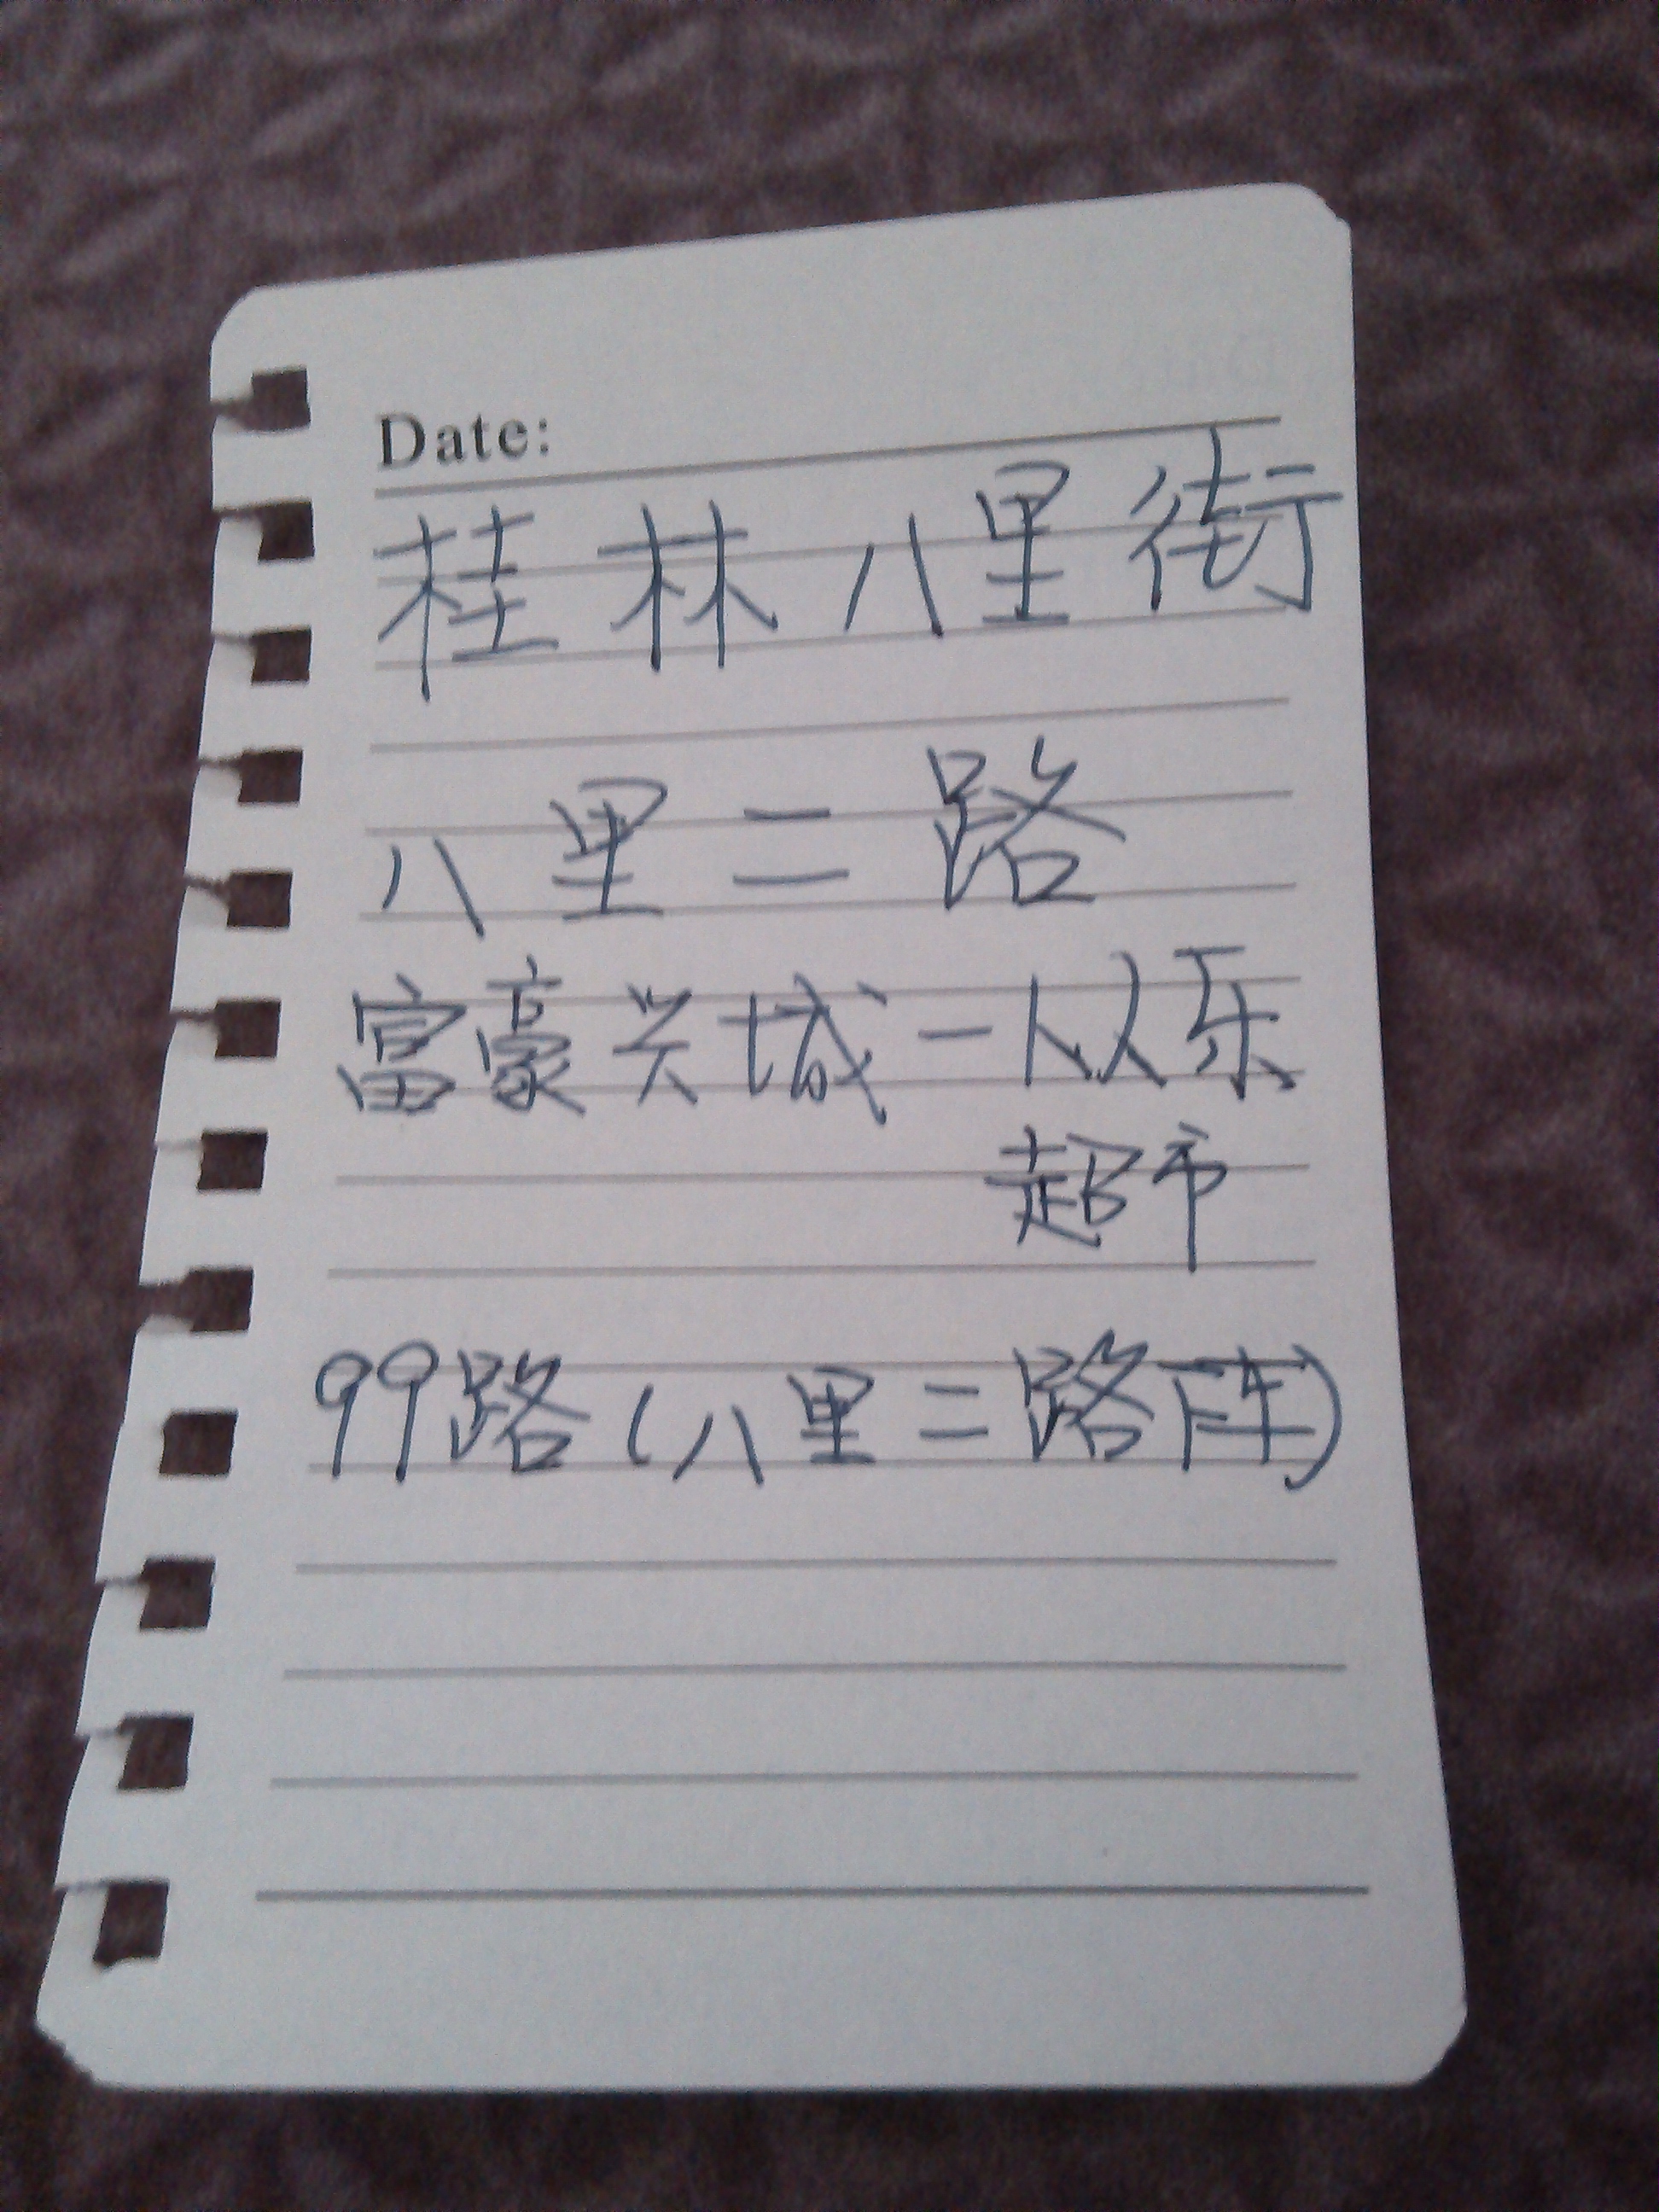 Date:
桂林八里街
八里二路
富豪兴城一以乐
超市
99路(八里二路下车)